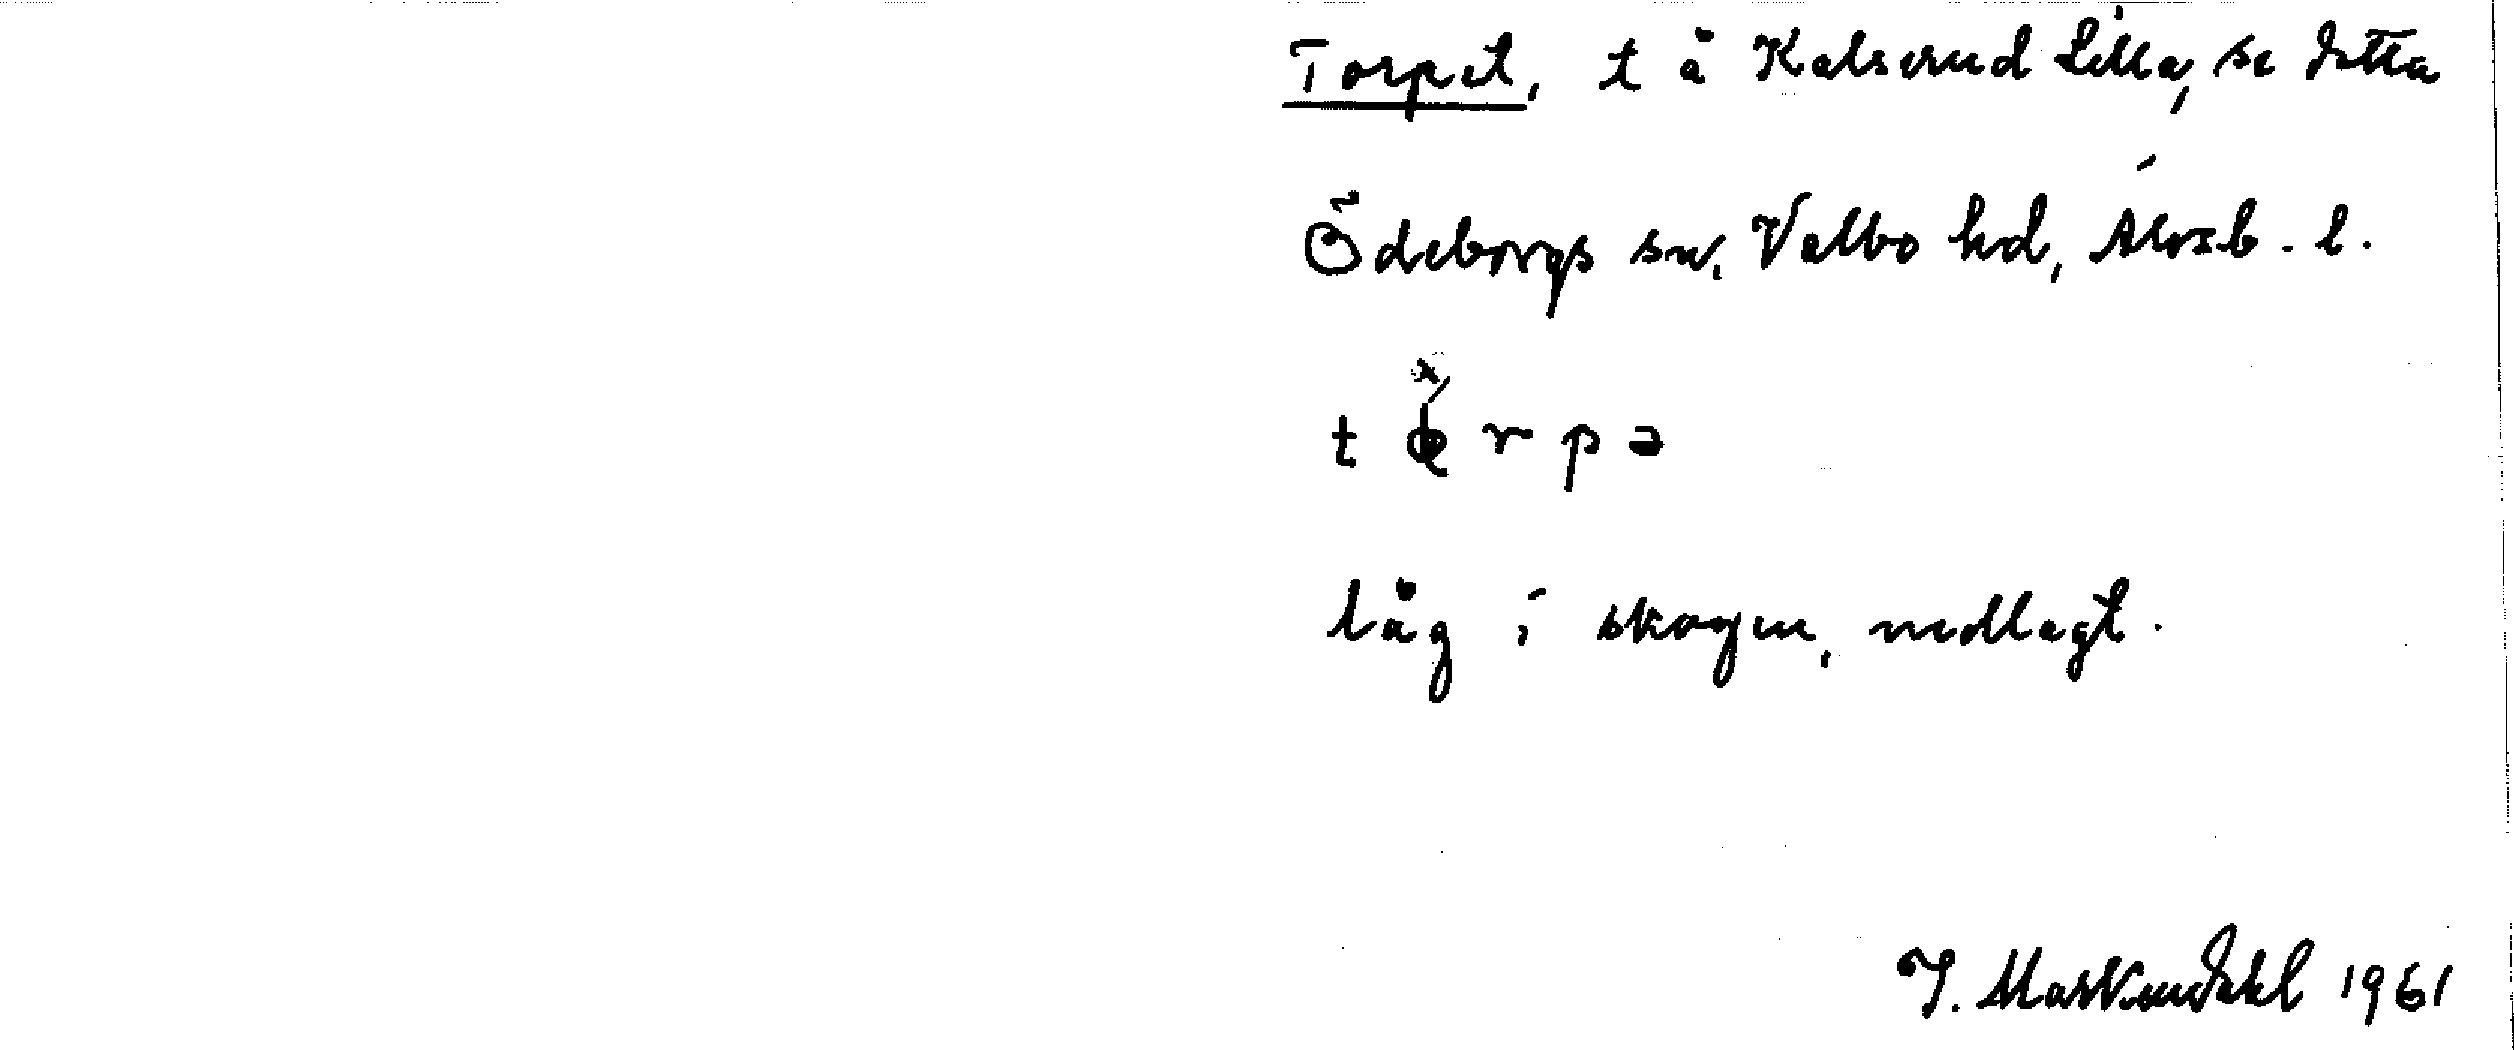 Torpet, t å Kalserud Lilla, se detta
Ödeborgs sn, Valbo hd, Älvsb. l.
rpə
låg i skogen, nedlagt.
J. 1961